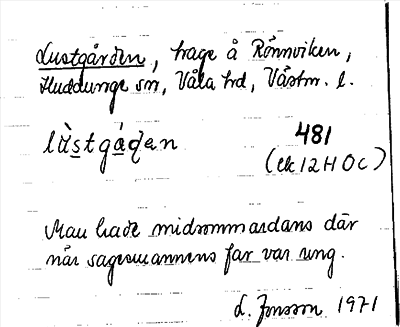 Lustgården, hage å Rönnviken,
Huddunge sn, Våla hd, Västm. l.
lùstgáḍen 481
(ek 12 H 0 c)
Man hade midsommardans där
när sagesmannens far var ung.
L. Jonsson 1971